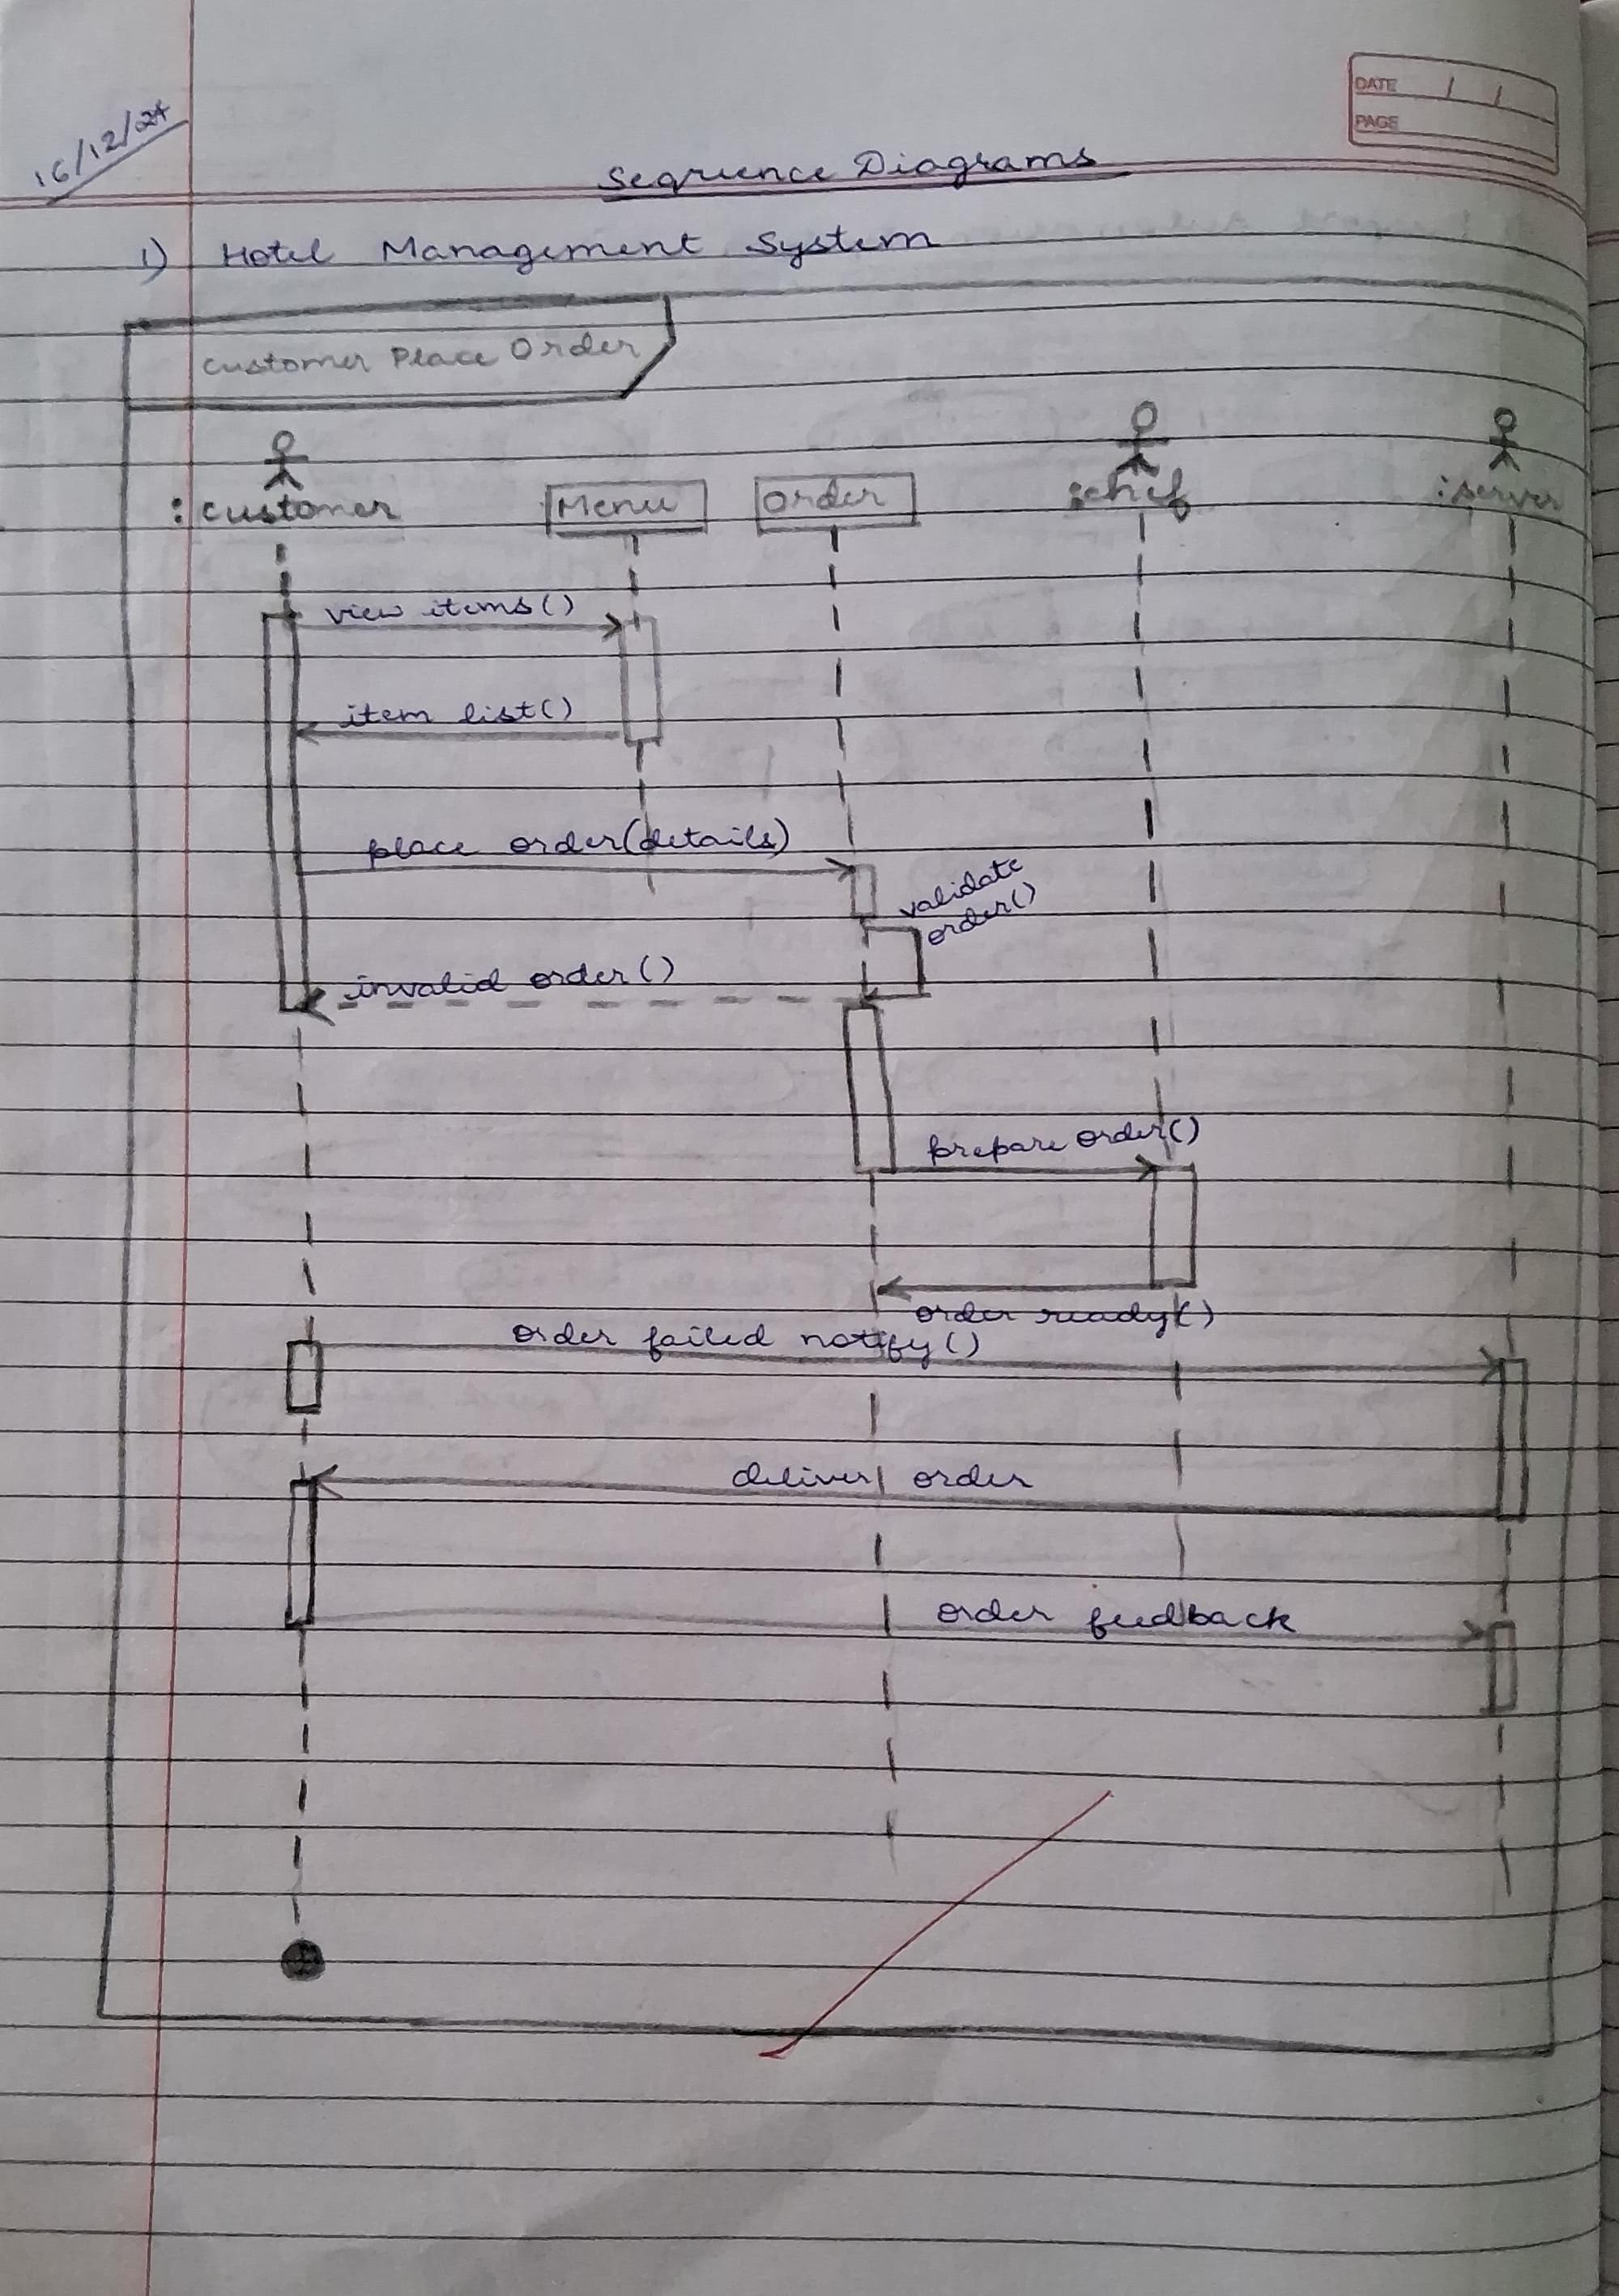 DATE / /
PAGE
16/12/24
Sequence Diagrams
1) Hotel Management System
Customer Place Order
:customer Menu Order :chef :server
view items()
item list()
place order(details)
validate
order()
invalid order()
prepare order()
order ready()
order failed notify()
deliver order
order feedback